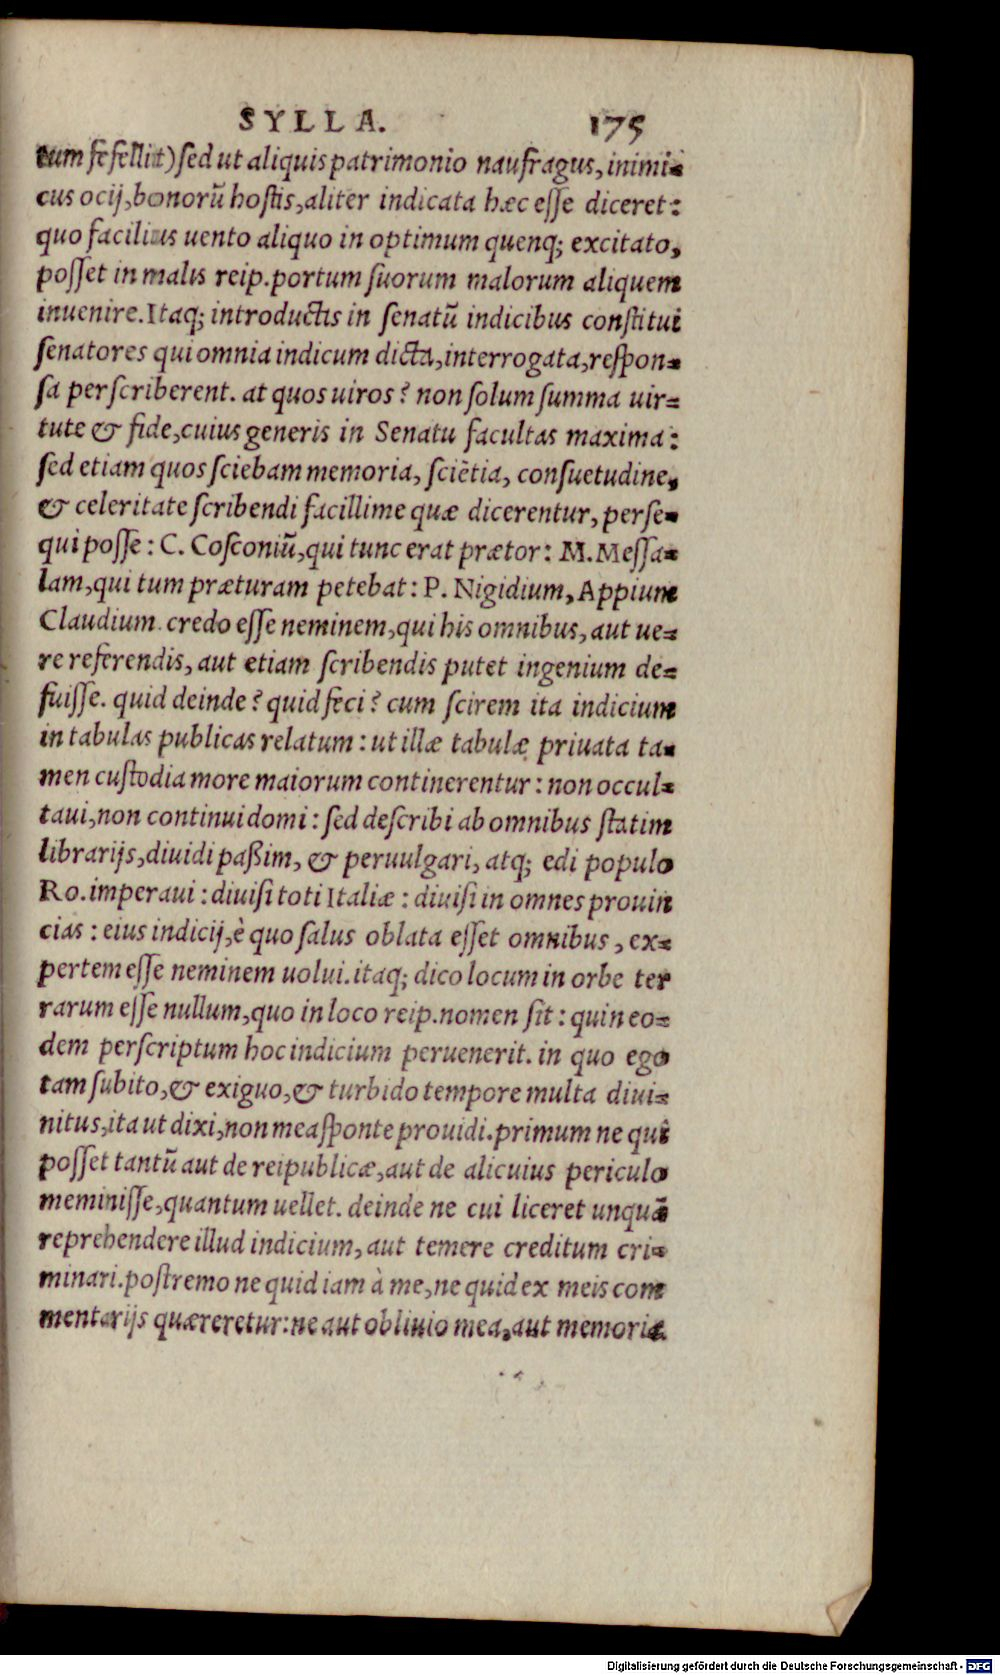 SYLLA. 175
tum fefellit) sed ut aliquis patrimonio naufragus, inimi-
cus ocij, bonorū hostis, aliter indicata hæc esse diceret:
quo facilius uento aliquo in optimum quenq; excitato,
posset in malis reip. portum suorum malorum aliquem
inuenire. Itaq; introductis in senatū indicibus constitui
senatores qui omnia indicum dicta, interrogata, respon-
sa perscriberent. at quos uiros? non solum summa uir-
tute & fide, cuius generis in Senatu facultas maxima:
sed etiam quos sciebam memoria, sciētia, consuetudine,
& celeritate scribendi facillime quæ dicerentur, perse-
qui posse: C. Cosconiū, qui tunc erat prætor: M. Messa-
lam, qui tum præturam petebat: P. Nigidium, Appium
Claudium. credo esse neminem, qui his omnibus, aut ue-
re referendis, aut etiam scribendis putet ingenium de-
fuisse. quid deinde? quid feci? cum scirem ita indicium
in tabulas publicas relatum: ut illæ tabulæ priuata ta-
men custodia more maiorum continerentur: non occul-
taui, non continui domi: sed describi ab omnibus statim
librarijs, diuidi paßim, & peruulgari, atq; edi populo
Ro. imperaui: diuisi toti Italiæ: diuisi in omnes prouin
cias: eius indicij, è quo salus oblata esset omnibus, ex-
pertem esse neminem uolui. itaq; dico locum in orbe ter
rarum esse nullum, quo in loco reip. nomen sit: quin eo-
dem perscriptum hoc indicium peruenerit. in quo ego
tam subito, & exiguo, & turbido tempore multa diui-
nitus, ita ut dixi, non mea sponte prouidi. primum ne qui
posset tantū aut de reipublicæ, aut de alicuius periculo
meminisse, quantum uellet. deinde ne cui liceret unquā
reprehendere illud indicium, aut temere creditum cri-
minari. postremo ne quid iam à me, ne quid ex meis com
mentarijs quæreretur: ne aut obliuio mea, aut memoria
Digitalisierung gefördert durch die Deutsche Forschungsgemeinschaft - DFG